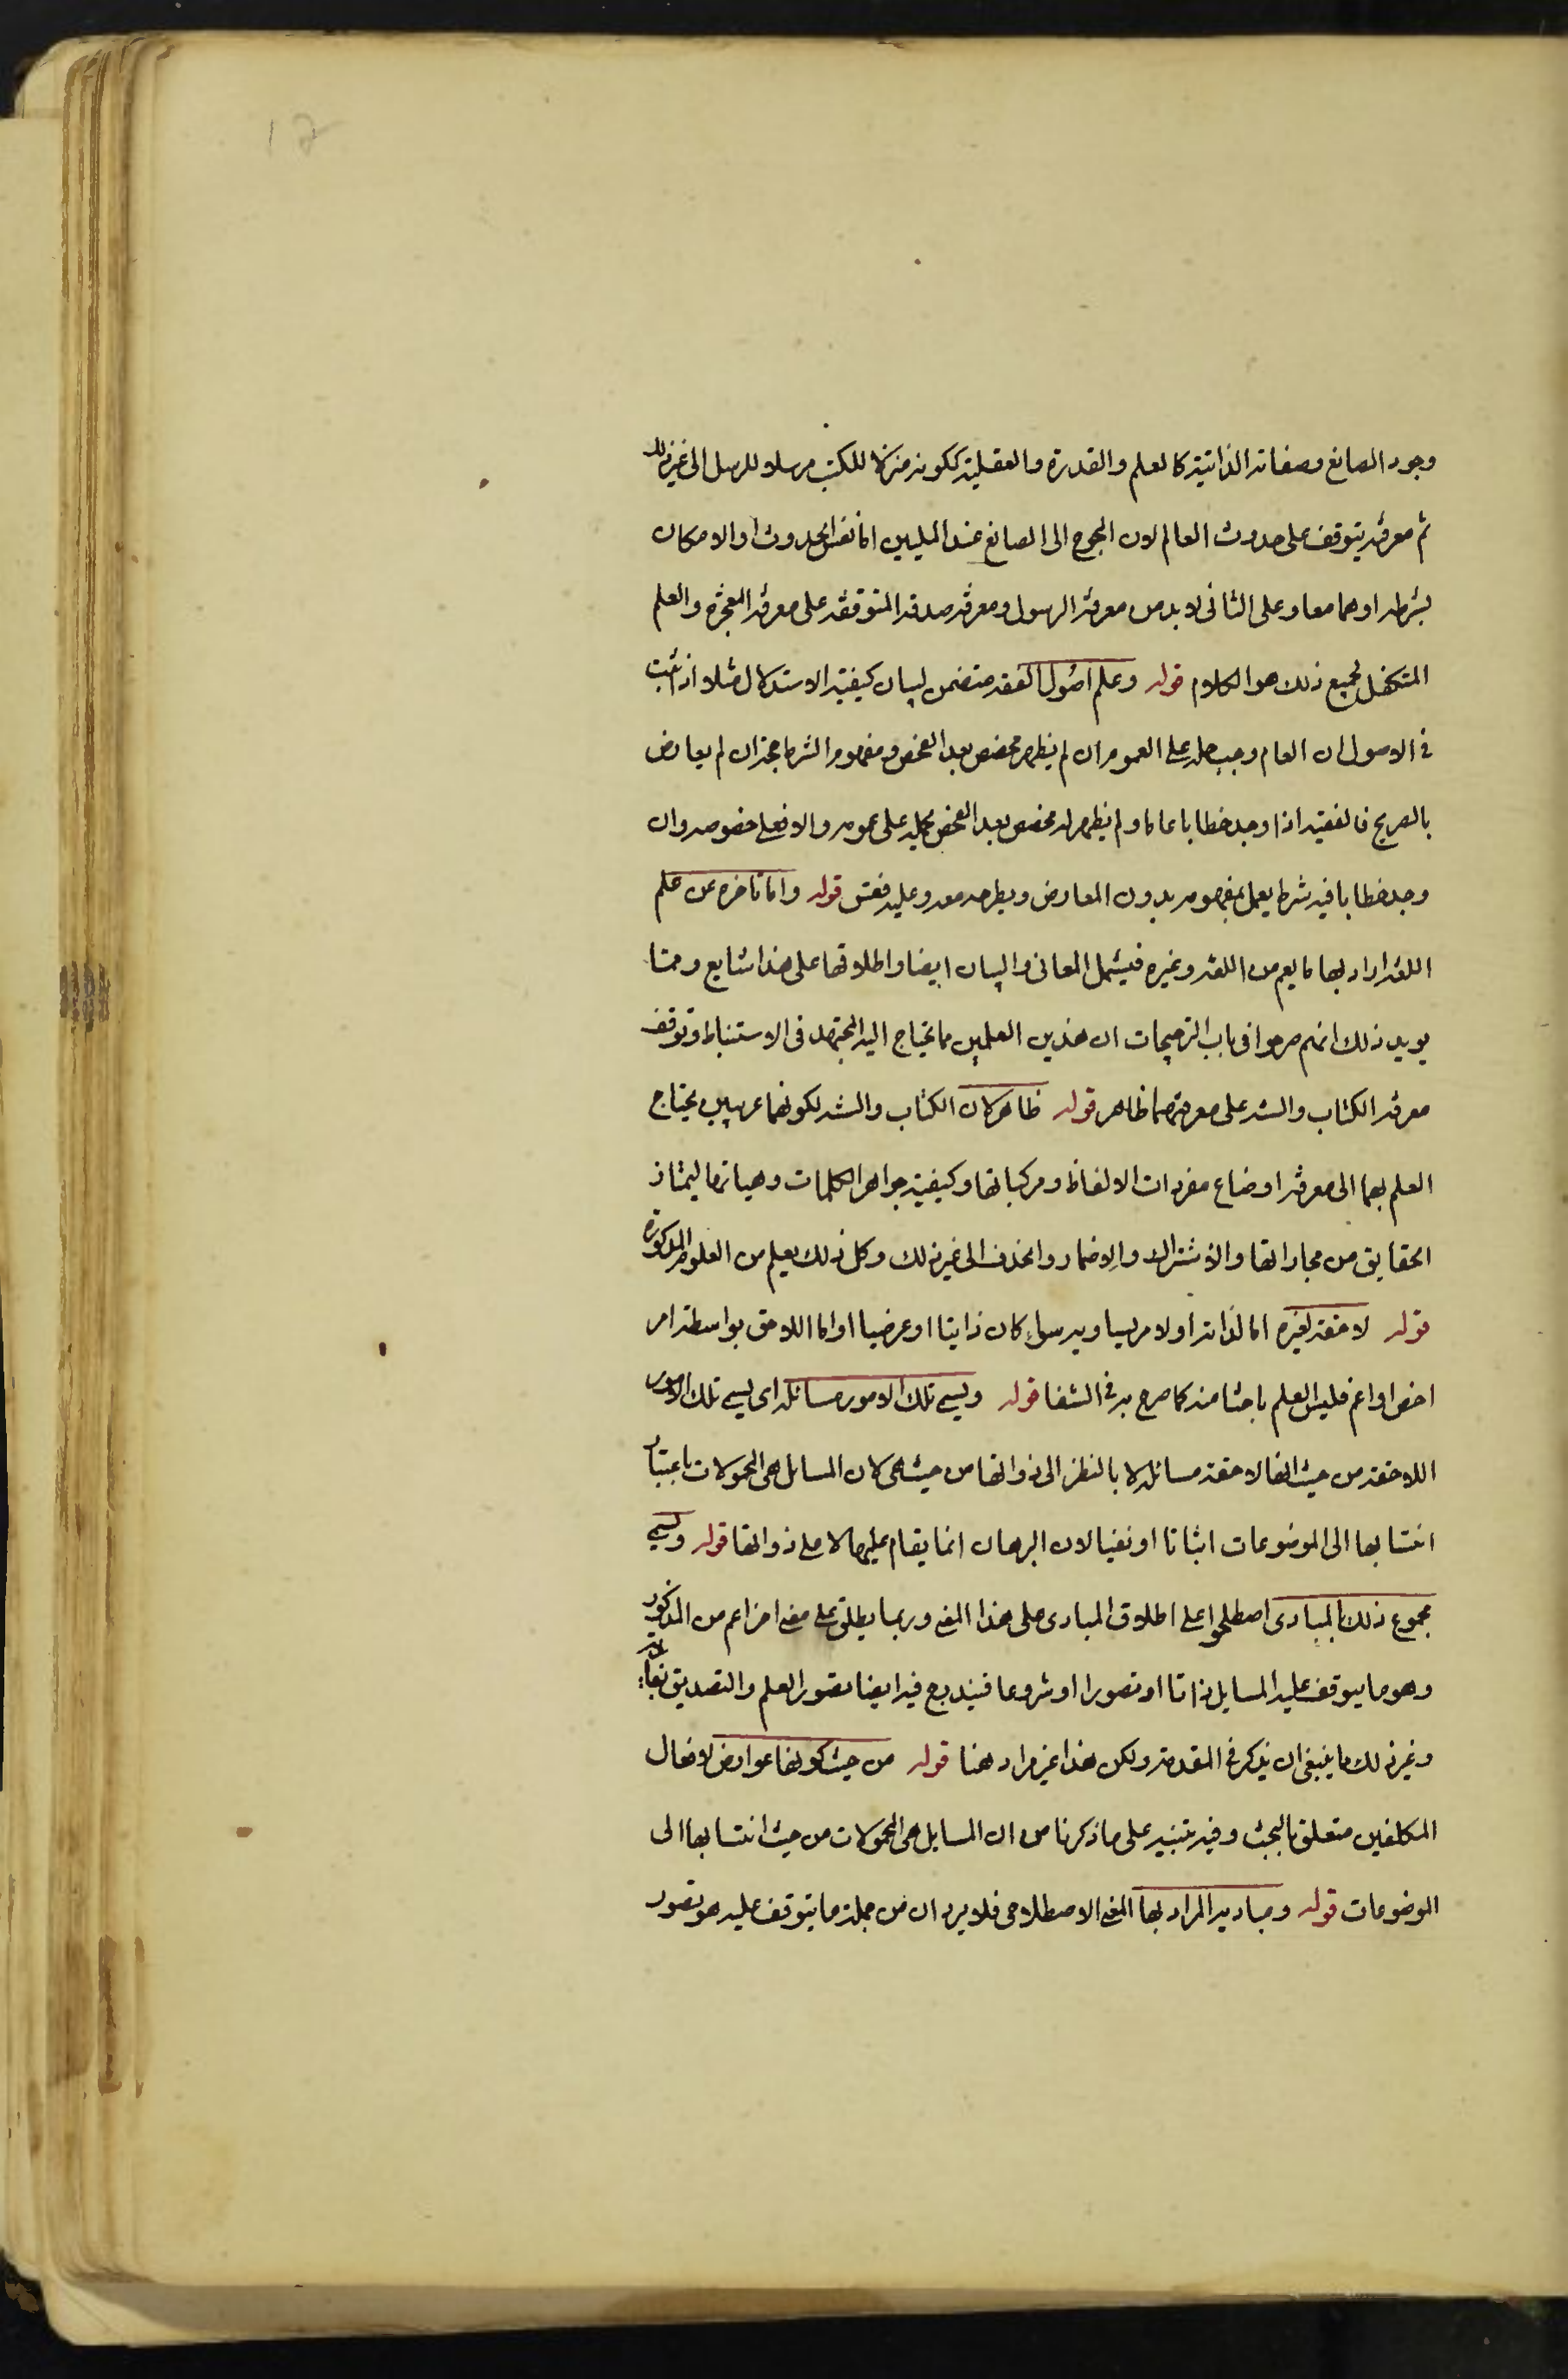 12
وجود الصانع وصفاته الذاتية كالعلم والقدرة والعقلية ككونه منزلا للكتب مرسلا للرسل الى غير ذلك
ثم معرفته يتوقف على حدوث العالم لان المحوج الى الصانع عند المليين اما نفس الحدوث او الامكان
بشرطه او هما معا وعلى الثانى لا بد من معرفة الرسول ومعرفة صدقه المتوقفة على معرفة المعجزة والعلم
المتكفل لجميع ذلك هو الكلام قوله وعلم اصول الفقه متضمن لبيان كيفية الاستدلال مثلا اذ اثبت
فى الاصول ان العام وجب حمله على العموم ان لم يظهر مخصص بعد الفحص ومفهوم الشرط حجة ان لم يعارض
بالصريح فالفقيه اذا وجد خطابا عاما ولم يظهر له مخصص بعد الفحص يحمله على عمومه والا فعلى خصوصه وان
وجد خطابا فيه شرط يعمل بمفهومه بدون المعارض ويطرحه معه وعليه فقس قوله واما تاخره عن علم
اللغة اراد بها ما يعم من اللغة وغيره فيشمل المعانى والبيان ايضا واطلاقها على هذا شايع ومما
يويد ذلك انهم صرحوا فى باب الترجيحات ان هذين العلمين مما يحتاج اليه المجتهد فى الاستنباط وتوقف
معرفة الكتاب والسنة على معرفتهما ظاهر قوله ظاهر كان الكتاب والسنة لكونهما عربيين يحتاج
العلم بهما الى معرفة اوضاع مفردات الالفاظ ومركباتها وكيفية جواهر الكلمات وهياتها ليمتاز
الحقايق من مجازاتها والاشتراك والاضمار والحذف الى غير ذلك وكل ذلك يعلم من العلوم المذكورة
قوله لاحقة لغيره اما لذاته او لامر يساويه سواء كان ذاتيا او عرضيا او اما اللاحق بواسطة امر
اخص او اعم فليس العلم باحثا منه كما صرح به فى الشفا قوله ويسمى تلك الامور مسائله اى يسمى تلك الامور
اللاحقة من حيث انها لاحقة مسائله لا بالنظر الى ذواتها من حيث هى كان المسايل هى المحمولات باعتبار
انتسابها الى الموضوعات اثباتا او نفيا لان البرهان انما يقام عليها لا على ذواتها قوله ويسمى
مجموع ذلك بالمبادى اصطلحوا على اطلاق المبادى على هذا المعنى وربما يطلق على معنى اخر اعم من المذكور
وهو ما يتوقف عليه المسايل ذاتا او تصورا او شروعا فيندرج فيه ايضا تصور العلم والتصديق بغايته
وغير ذلك ما ينبغى ان يذكر فى المقدمة ولكن هذا غير مراد هنا قوله من حيث كونها عوارض لافعال
المكلفين متعلق بالبحث وفيه تنبيه على ما ذكرنا من ان المسايل هى المحمولات من حيث انتسابها الى
الموضوعات قوله ومباديه المراد بها المعنى الاصطلاحى فلا يرد ان من جملة ما يتوقف عليه هو تصور